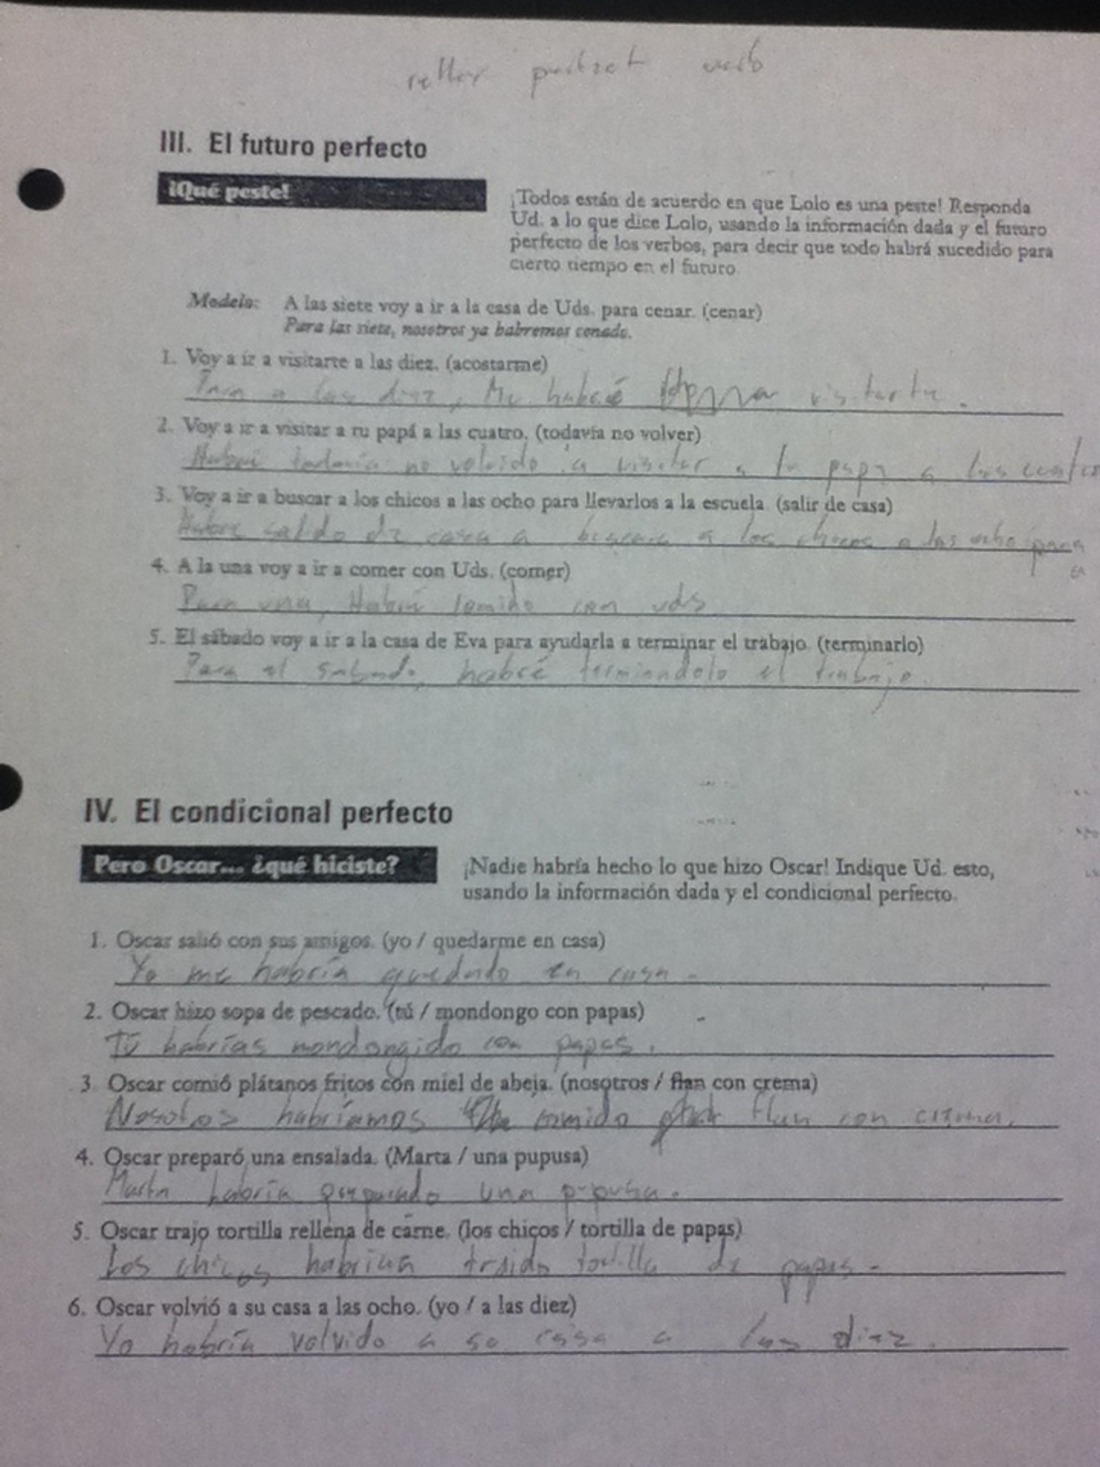 verb
III. El futuro perfecto
¡Qué peste!
¡Todos están de acuerdo en que Lolo es una peste! Responda
Ud. a lo que dice Lolo, usando la información dada y el futuro
perfecto de los verbos, para decir que todo habrá sucedido para
cierto tiempo en el futuro.
Modelo: A las siete voy a ir a la casa de Uds. para cenar. (cenar)
Para las siete, nosotros ya habremos cenado.
1. Voy a ir a visitarte a las diez. (acostarme)
Para a las diez, Me habré visitarte.
2. Voy a ir a visitar a tu papá a las cuatro. (todavía no volver)
Habré todavía no volvido a visitar a tu papa a las cuatro
3. Voy a ir a buscar a los chicos a las ocho para llevarlos a la escuela. (salir de casa)
Habre salido de casa a buscar a los chicos a las ocho para
4. A la una voy a ir a comer con Uds. (comer)
Para una, Habré comido con uds
5. El sábado voy a ir a la casa de Eva para ayudarla a terminar el trabajo. (terminarlo)
Para el sabado, habré termindolo el trabajo.
IV. El condicional perfecto
Pero Oscar... ¿qué hiciste?
¡Nadie habría hecho lo que hizo Oscar! Indique Ud. esto,
usando la información dada y el condicional perfecto.
1. Oscar salió con sus amigos. (yo / quedarme en casa)
Yo me habría quedado en casa.
2. Oscar hizo sopa de pescado. (tú / mondongo con papas)
Tú habrías mondongido con papas.
3. Oscar comió plátanos fritos con miel de abeja. (nosotros / flan con crema)
Nosotros habríamos comido flan con crema.
4. Oscar preparó una ensalada. (Marta / una pupusa)
Marta habría preparado una pupusa.
5. Oscar trajo tortilla rellena de carne. (los chicos / tortilla de papas)
Los chicos habrian traido tortilla de papas.
6. Oscar volvió a su casa a las ocho. (yo / a las diez)
Yo habría volvido a so casa a las diez.